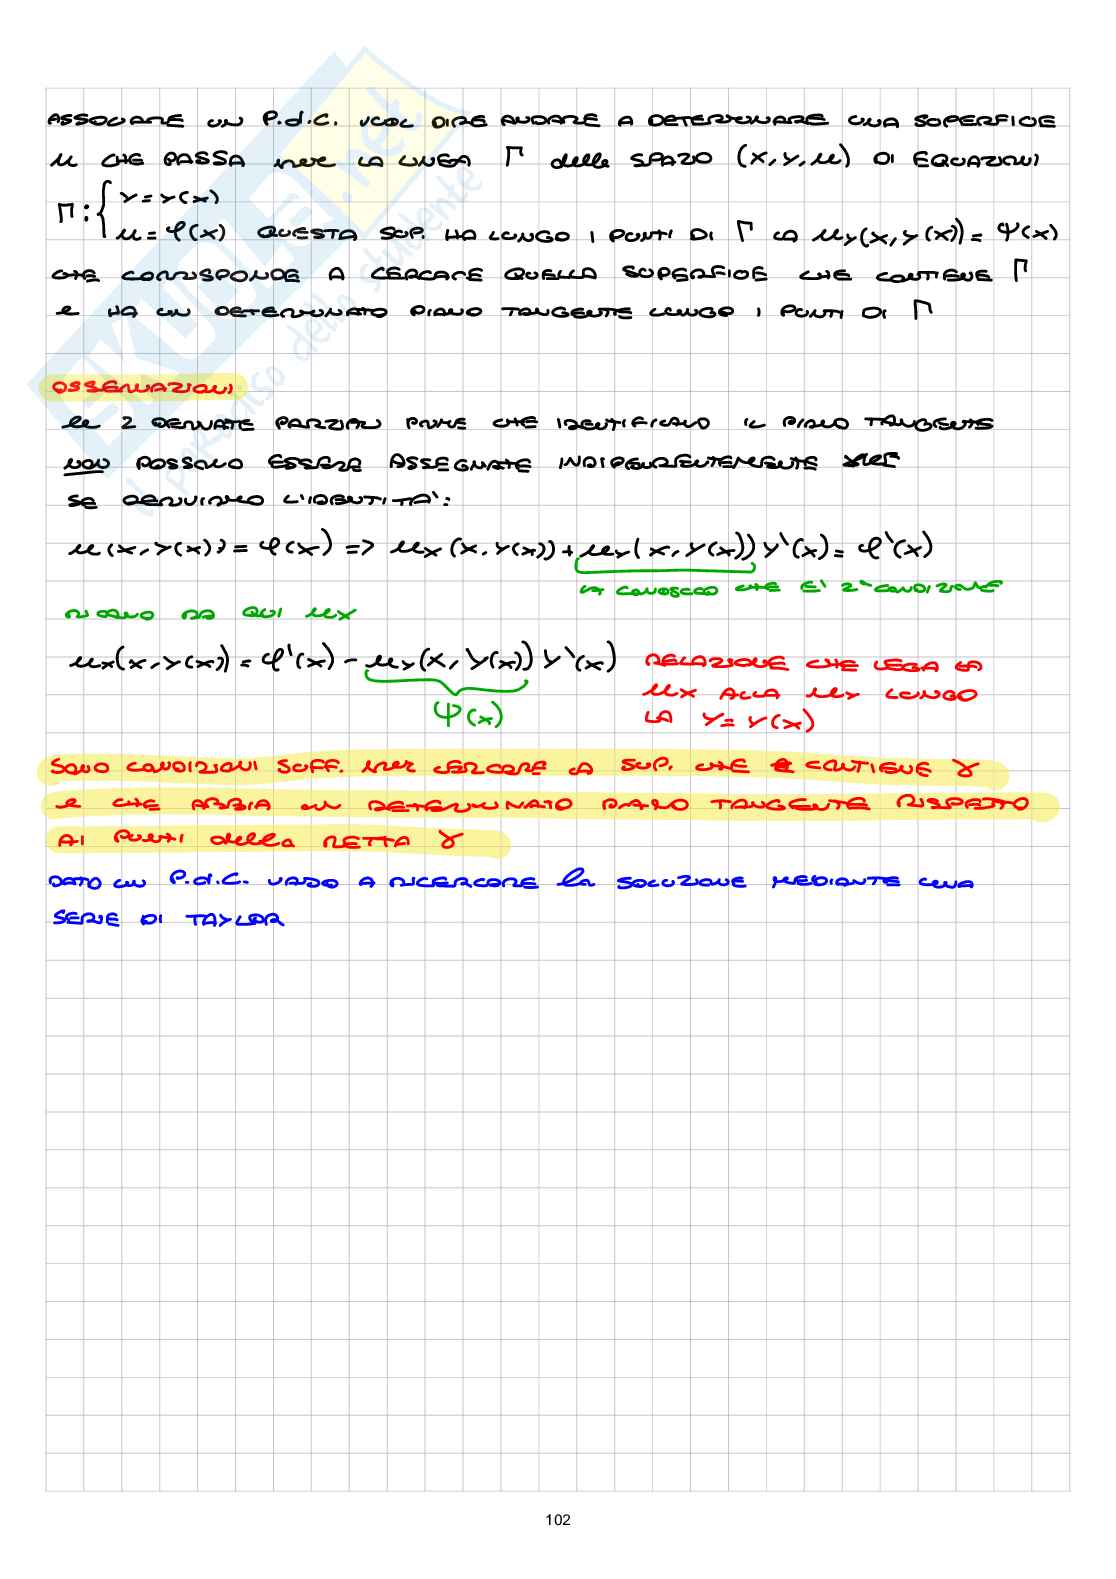 ASSOCIARE UN P.d.C. VUOL DIRE ANDARE A DETERMINARE UNA SUPERFICIE
u CHE PASSA per LA LINEA Γ dello SPAZIO (x,y,u) DI EQUAZIONI
Γ: { y=y(x)
u=φ(x) QUESTA SUP. HA LUNGO I PUNTI DI Γ LA uy(x,y(x))=ψ(x)
CHE CORRISPONDE A CERCARE QUELLA SUPERFICIE CHE CONTIENE Γ
e HA UN DETERMINATO PIANO TANGENTE LUNGO I PUNTI DI Γ
OSSERVAZIONI
le 2 DERIVATE PARZIALI PRIME CHE IDENTIFICANO IL PIANO TANGENTE
NON POSSONO ESSERE ASSEGNATE INDIPENDENTEMENTE
SE DERIVIAMO L'IDENTITA':
u(x,y(x))=φ(x) => ux(x,y(x))+uy(x,y(x))y'(x)=φ'(x)
LA CONOSCO CHE E' 2ª CONDIZIONE
RICAVO DA QUI ux
ux(x,y(x))=φ'(x)-uy(x,y(x))y'(x) RELAZIONE CHE LEGA LA
ux ALLA uy LUNGO
ψ(x) LA y=y(x)
SONO CONDIZIONI SUFF. per CERCARE LA SUP. CHE CONTIENE γ
e CHE ABBIA UN DETERMINATO PIANO TANGENTE RISPETTO
AI PUNTI della RETTA γ
DATO UN P.d.C. VADO A RICERCARE la SOLUZIONE MEDIANTE UNA
SERIE DI TAYLOR
SKUOLA.net
il paradiso dello studente
102